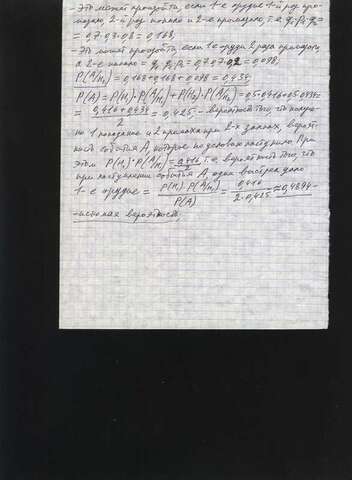 - Это может произойти, если 1-е орудие 1-й раз про-
мазало, 2-й раз попало и 2-е промазало, т.е. q₁p₁q₂=
= 0,7·0,3·0,8 = 0,168,
- Это может произойти, если 1-е орудие 2 раза промазало,
а 2-е попало = q₁q₁p₂ = 0,7·0,7·0,2 = 0,098,
P(A/H₂) = 0,168+0,168+0,098 = 0,434
P(A) = P(H₁)·P(A/H₁)+P(H₂)·P(A/H₂) = 0,5·0,416+0,5·0,434=
= (0,416+0,434)/2 = 0,425, - вероятность того, что получе-
но 1 попадание и 2 промаха при 2-х залпах, вероят-
ность события A, которое по условию наступило. При
этом P(H₁)·P(A/H₁) = 0,416/2, т.е. вероятность того, что
при наступлении события A, один выстрел дало
1-е орудие = P(H₁)·P(A/H₁)/P(A) = 0,416/(2·0,425) ≈ 0,4894 -
- искомая вероятность.